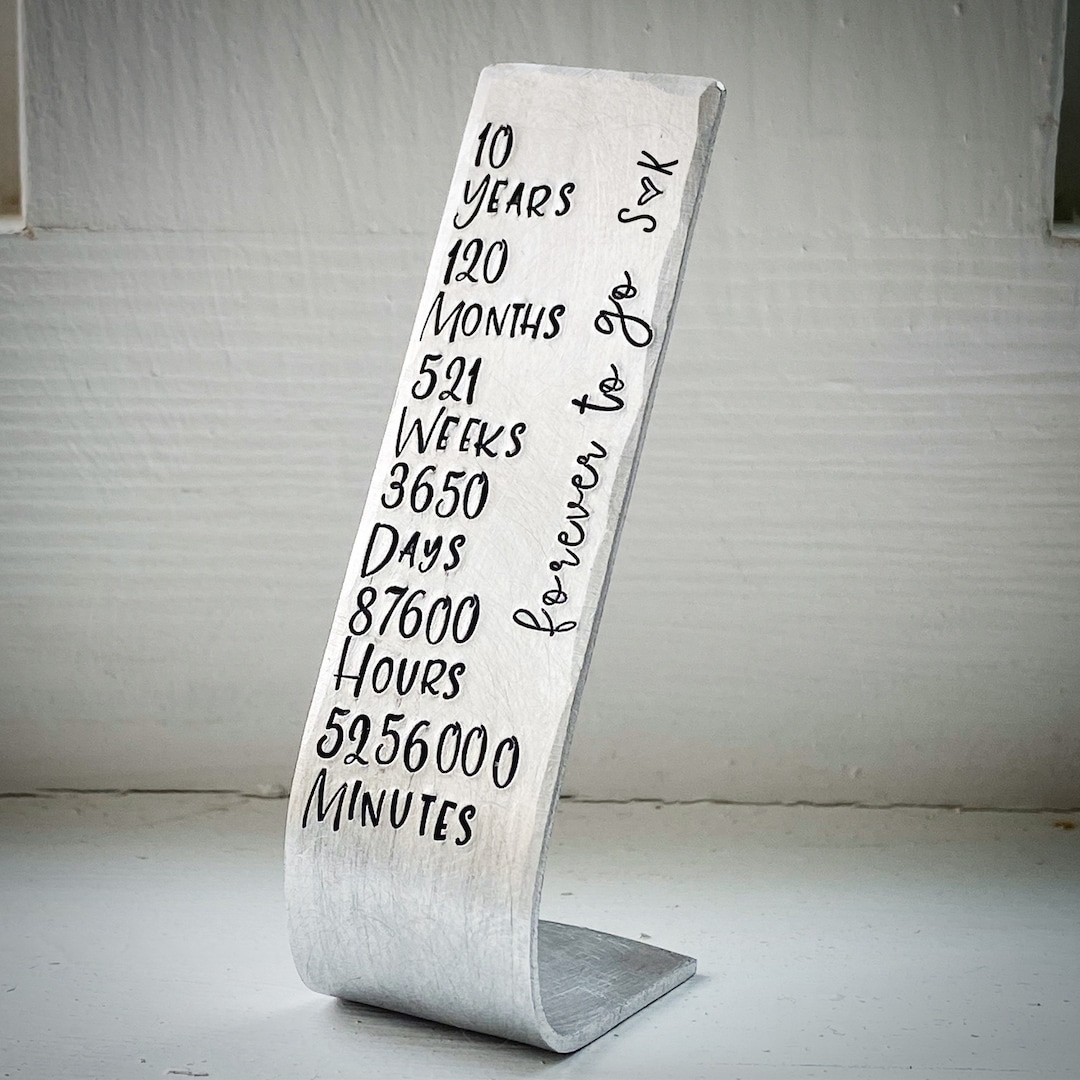 10
YEARS
120
MONTHS
521
WEEKS
3650
DAYS
87600
HOURS
5256000
MINUTES
forever to go S♥K